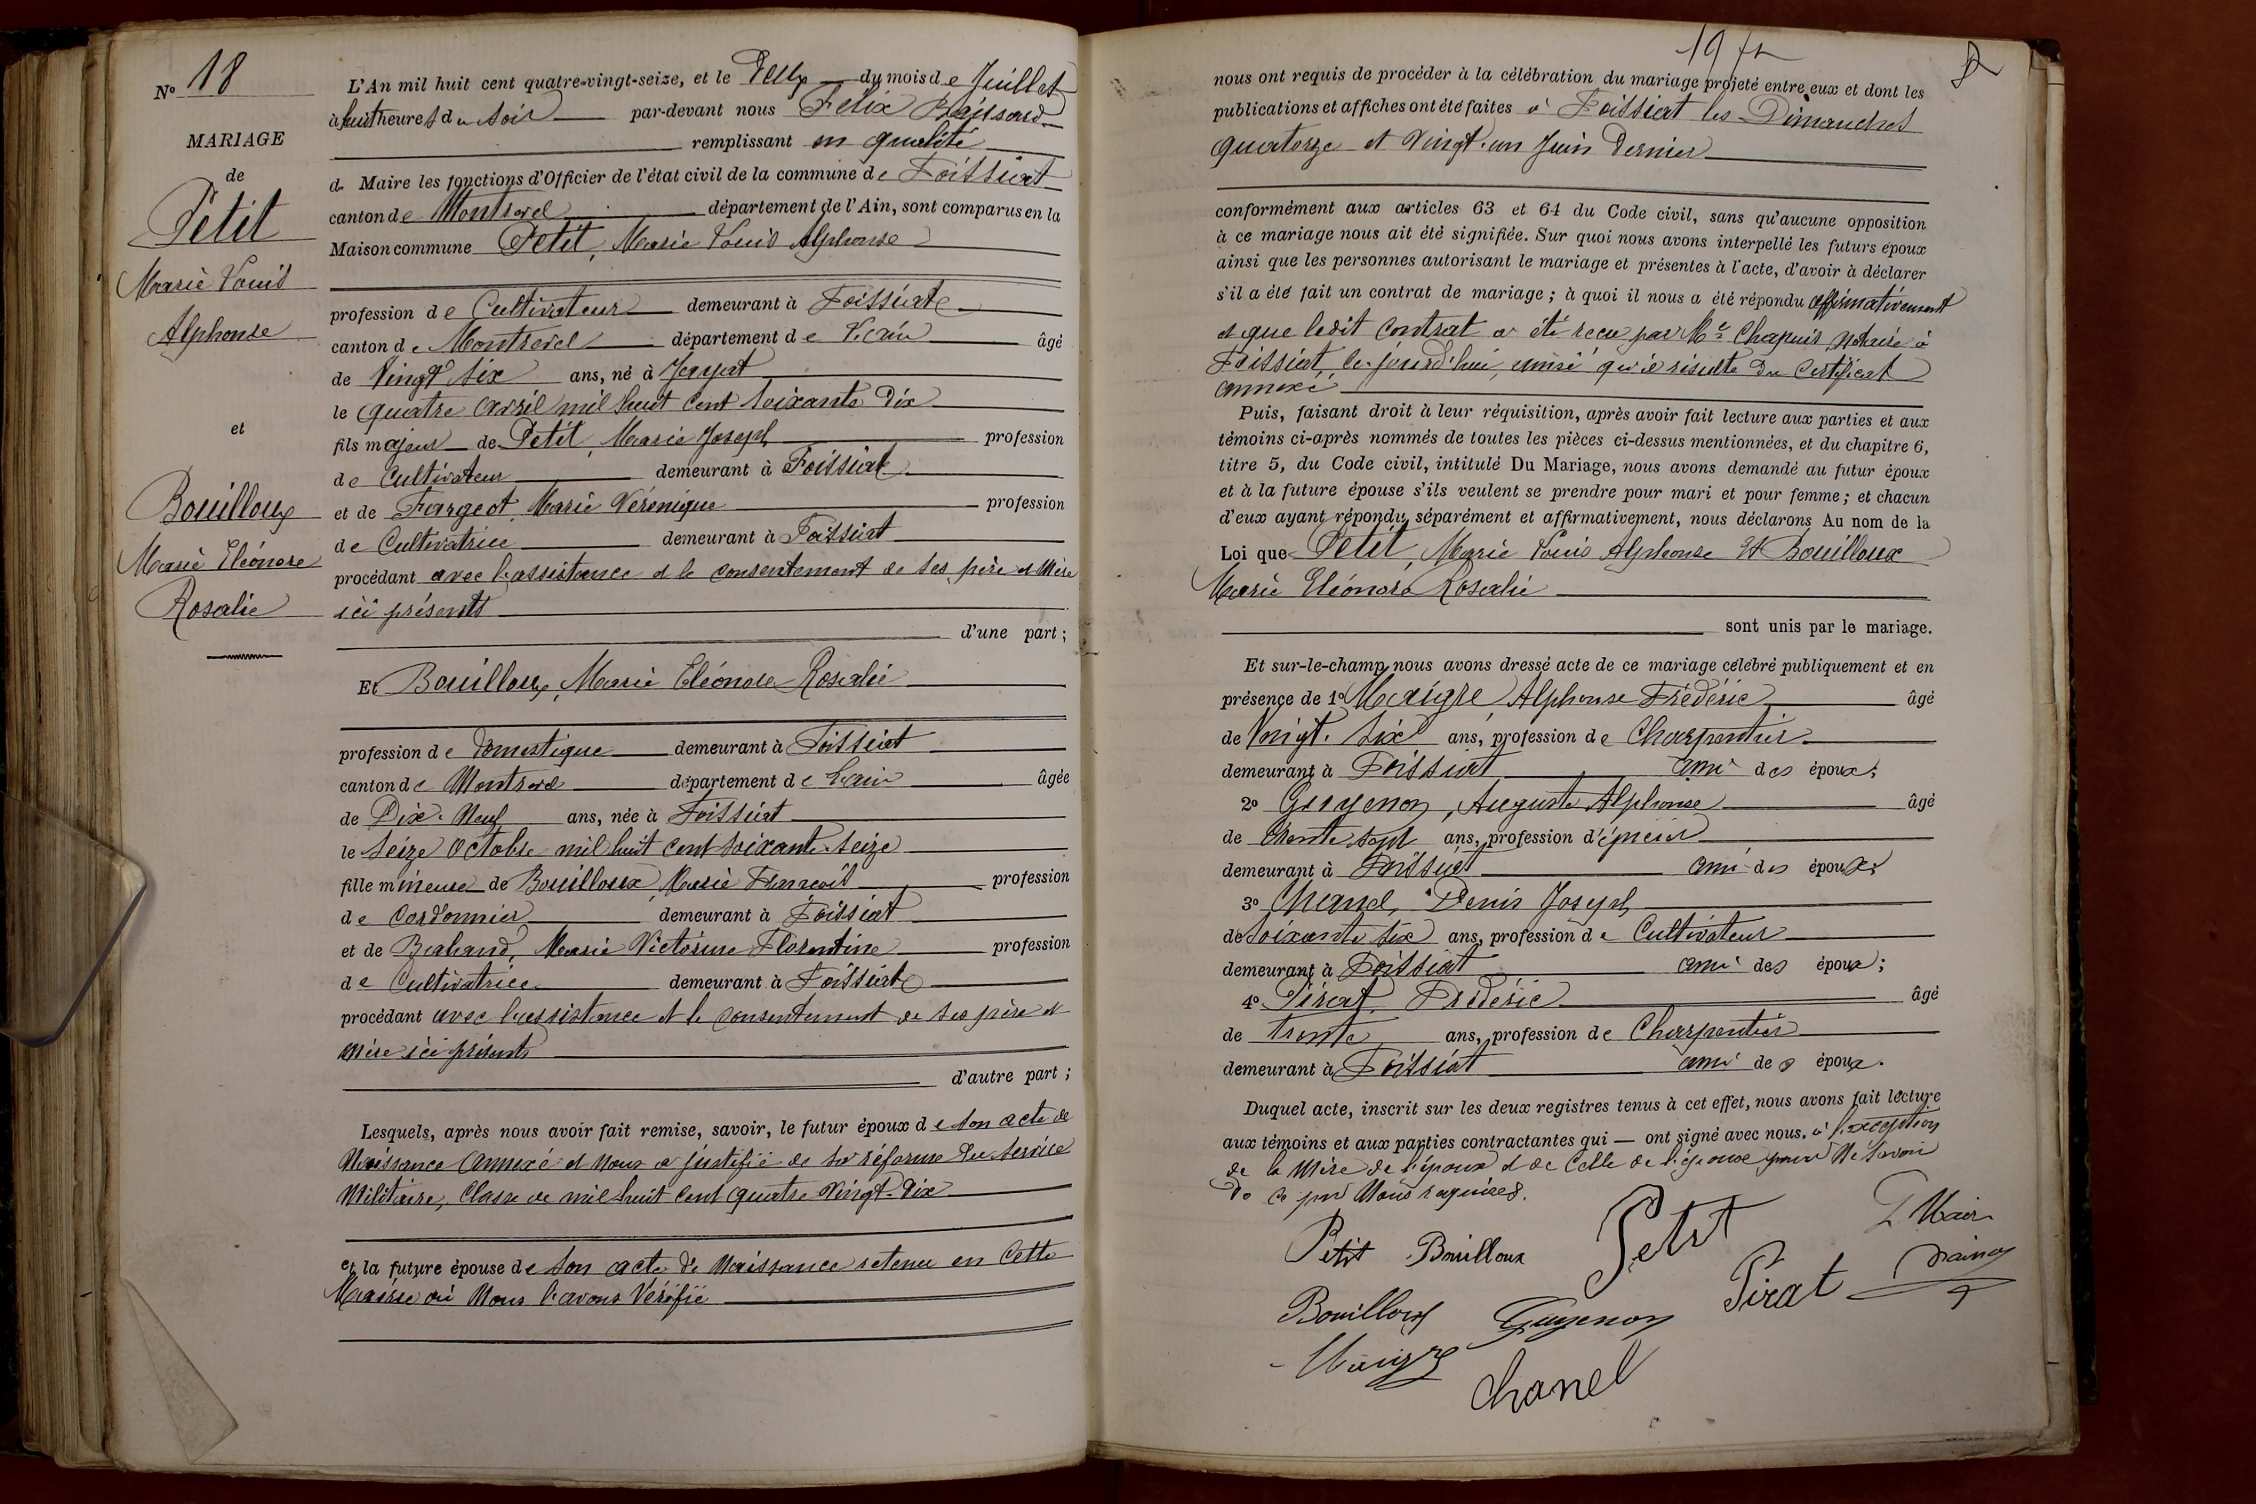 N° 18
MARIAGE
de
Petit
Marie Louis
Alphonse
et
Bouilloux
Marie Eléonore
Rosalie
L'An mil huit cent quatre-vingt-seize, et le Deux du mois de Juillet
à huit heures du soir par-devant nous Félix
remplissant en qualité
de Maire les fonctions d'Officier de l'état civil de la commune de Foissiat
canton de Montrevel département de l'Ain, sont comparus en la
Maison commune Petit, Marie Louis Alphonse
profession de Cultivateur demeurant à Foissiat
canton de Montrevel département de l'ain âgé
de Vingt six ans, né à Jayat
le quatre avril mil huit cent soixante dix
fils majeur de Petit, Marie Joseph profession
de Cultivateur demeurant à Foissiat
et de Fargeot, Marie Véronique profession
de Cultivatrice demeurant à Foissiat
procédant avec l'assistance et le consentement de ses père et Mère
ici présents
d'une part ;
Et Bouilloux, Marie Eléonore Rosalie
profession de domestique demeurant à Foissiat
canton de Montrevel département de l'ain âgée
de Dix-Neuf ans, née à Foissiat
le Seize Octobre mil huit cent soixante seize
fille mineure de Bouilloux, Marie François profession
de Cordonnier demeurant à Foissiat
et de Marie Victorine Florentine profession
de Cultivatrice demeurant à Foissiat
procédant avec l'assistance et le consentement de ses père et
mère ici présents
d'autre part ;
Lesquels, après nous avoir fait remise, savoir, le futur époux de son acte de
Naissance annexé et nous a justifié de sa réforme du service
Militaire, Classe de mil huit cent quatre Vingt-Dix
et la future épouse de son acte de Naissance retenu en Cette
Mairie où Nous l'avons Vérifié
19
nous ont requis de procéder à la célébration du mariage projeté entre eux et dont les
publications et affiches ont été faites à Foissiat les Dimanches
quatorze et Vingt-un Juin Dernier
conformément aux articles 63 et 64 du Code civil, sans qu'aucune opposition
à ce mariage nous ait été signifiée. Sur quoi nous avons interpellé les futurs époux
ainsi que les personnes autorisant le mariage et présentes à l'acte, d'avoir à déclarer
s'il a été fait un contrat de mariage ; à quoi il nous a été répondu affirmativement
et que ledit Contrat a été reçu par Me Chapuis, Notaire à
Foissiat, ce jourd'hui, ainsi qu'il résulte du Certificat
annexé
Puis, faisant droit à leur réquisition, après avoir fait lecture aux parties et aux
témoins ci-après nommés de toutes les pièces ci-dessus mentionnées, et du chapitre 6,
titre 5, du Code civil, intitulé Du Mariage, nous avons demandé au futur époux
et à la future épouse s'ils veulent se prendre pour mari et pour femme ; et chacun
d'eux ayant répondu séparément et affirmativement, nous déclarons Au nom de la
Loi que Petit, Marie Louis Alphonse Et Bouilloux
Marie Eléonore Rosalie
sont unis par le mariage.
Et sur-le-champ nous avons dressé acte de ce mariage célébré publiquement et en
présence de 1° Maigre, Alphonse Frédéric âgé
de Vingt-six ans, profession de Charpentier
demeurant à Foissiat ami des époux ;
2° Guyenon, Auguste Alphonse âgé
de trente sept ans, profession d'épicier
demeurant à Foissiat ami des époux ;
3° Chanel, Denis Joseph
de soixante six ans, profession de Cultivateur
demeurant à Foissiat ami des époux ;
4° Pirat, Frédéric âgé
de trente ans, profession de Charpentier
demeurant à Foissiat ami des époux.
Duquel acte, inscrit sur les deux registres tenus à cet effet, nous avons fait lecture
aux témoins et aux parties contractantes qui — ont signé avec nous, à l'exception
de la Mère de l'époux et de Celle de l'épouse pour Ne Savoir
de ce par Nous requises.
Petit Bouilloux Petit F. Maire
Bouilloux Guyenon Pirat
Maigre
Chanel